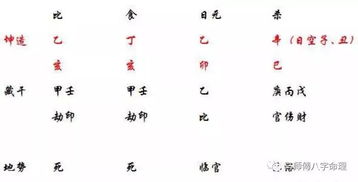 比 食 日元 杀
坤造 乙 丁 乙 辛 (日空子、丑)
亥 亥 卯 巳
藏干 甲壬 甲壬 乙 庚丙戊
劫印 劫印 比 官伤财
地势 死 死 临官
师傅八字命理